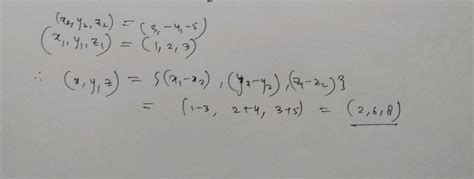 (x₂, y₂, z₂) = (3, -4, -5)
(x₁, y₁, z₁) = (1, 2, 3)
∴ (x, y, z) = {(x₁-x₂), (y₁-y₂), (z₁-z₂)}
= (1-3, 2+4, 3+5) = (2, 6, 8)